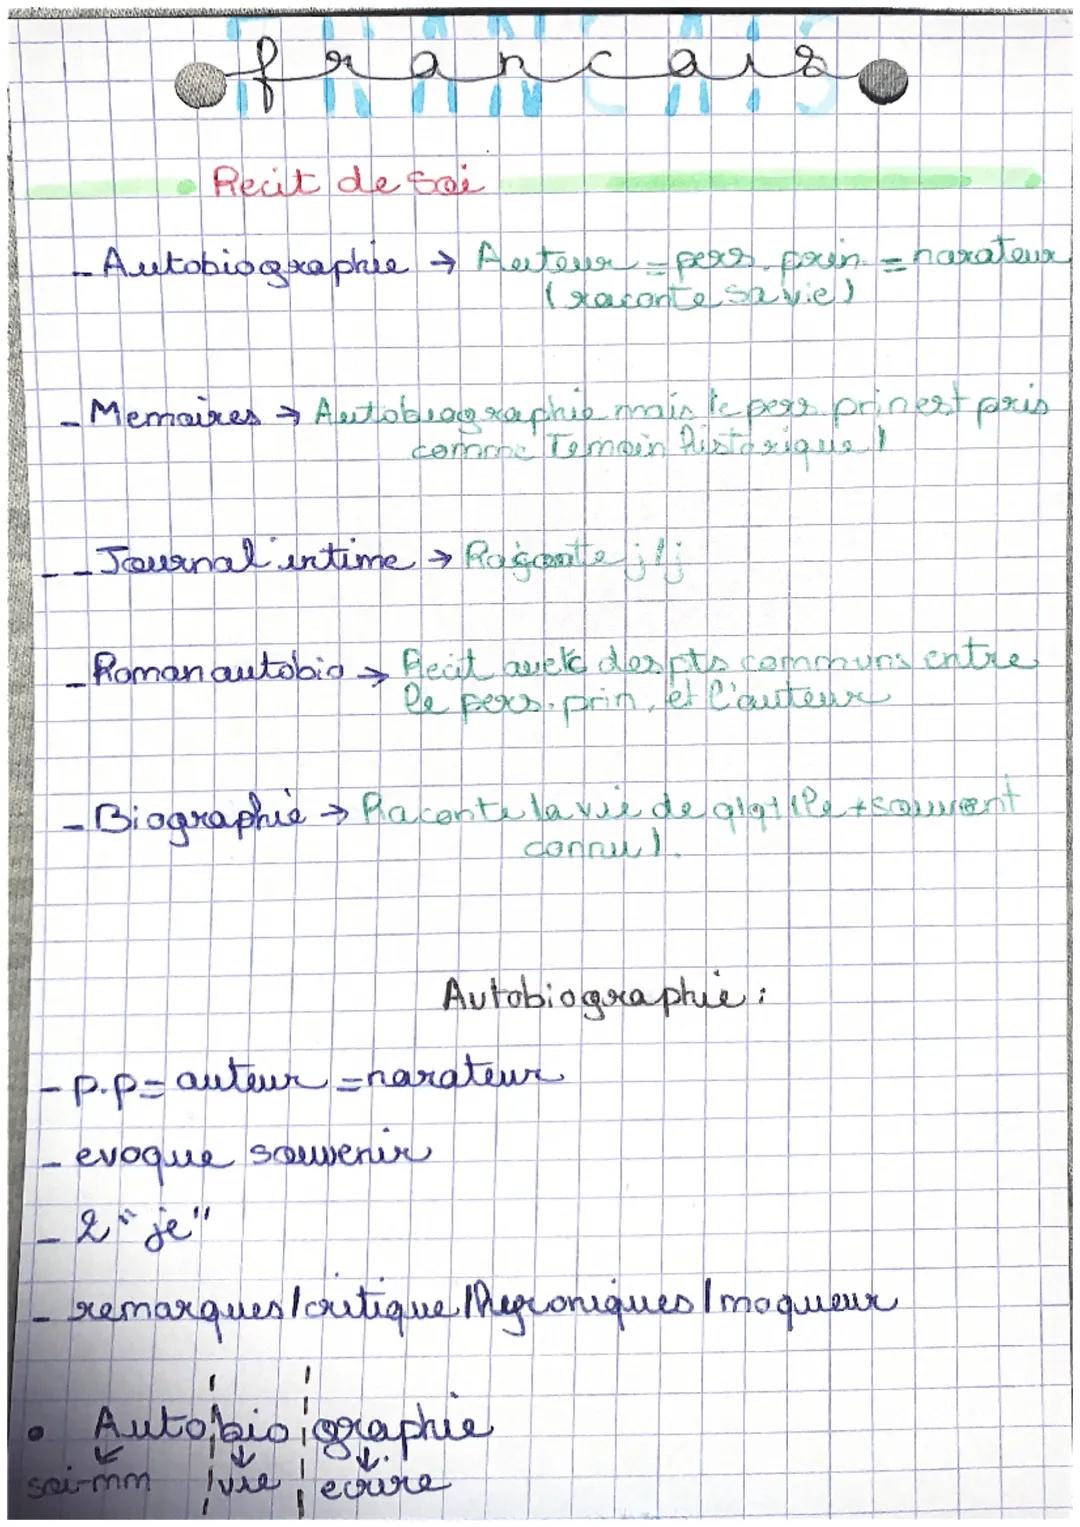 FRANCAIS
francais
Recit de soi
- Autobiographie → Auteur = pers. prin. = narateur
(raconte sa vie)
- Memoires → Autobiographie mais le pers prin est pris
comme Temoin historique !
- Journal intime → Raconte j/j
- Roman autobio → Recit avek des pts communs entre
le pers. prin. et l'auteur
- Biographie → Raconte la vie de qlq1 (le + souvent
connu).
Autobiographie :
- p.p = auteur = narateur
- evoque souvenir
- 2 "je"
- remarques/critique / moqueur
• Auto bio graphie
soi-mm vie ecrire